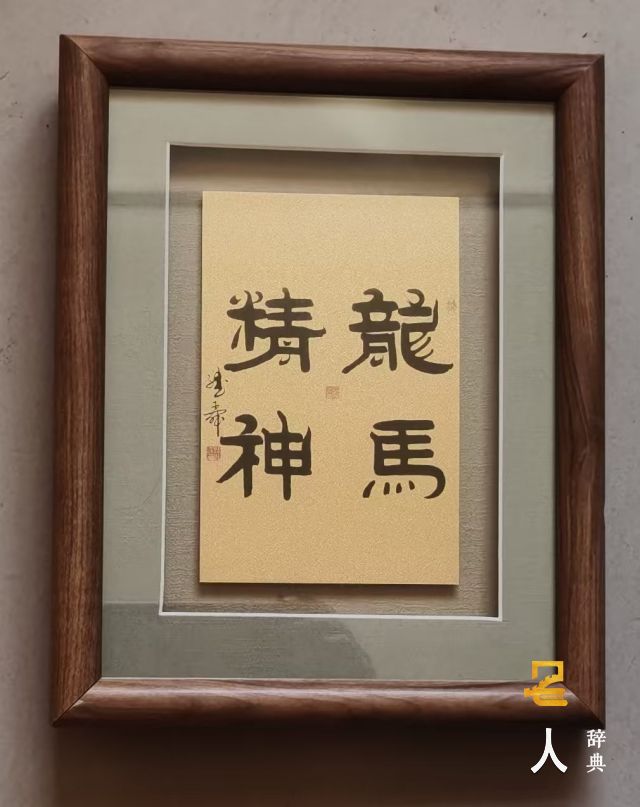 龍馬
精神
人
辞典